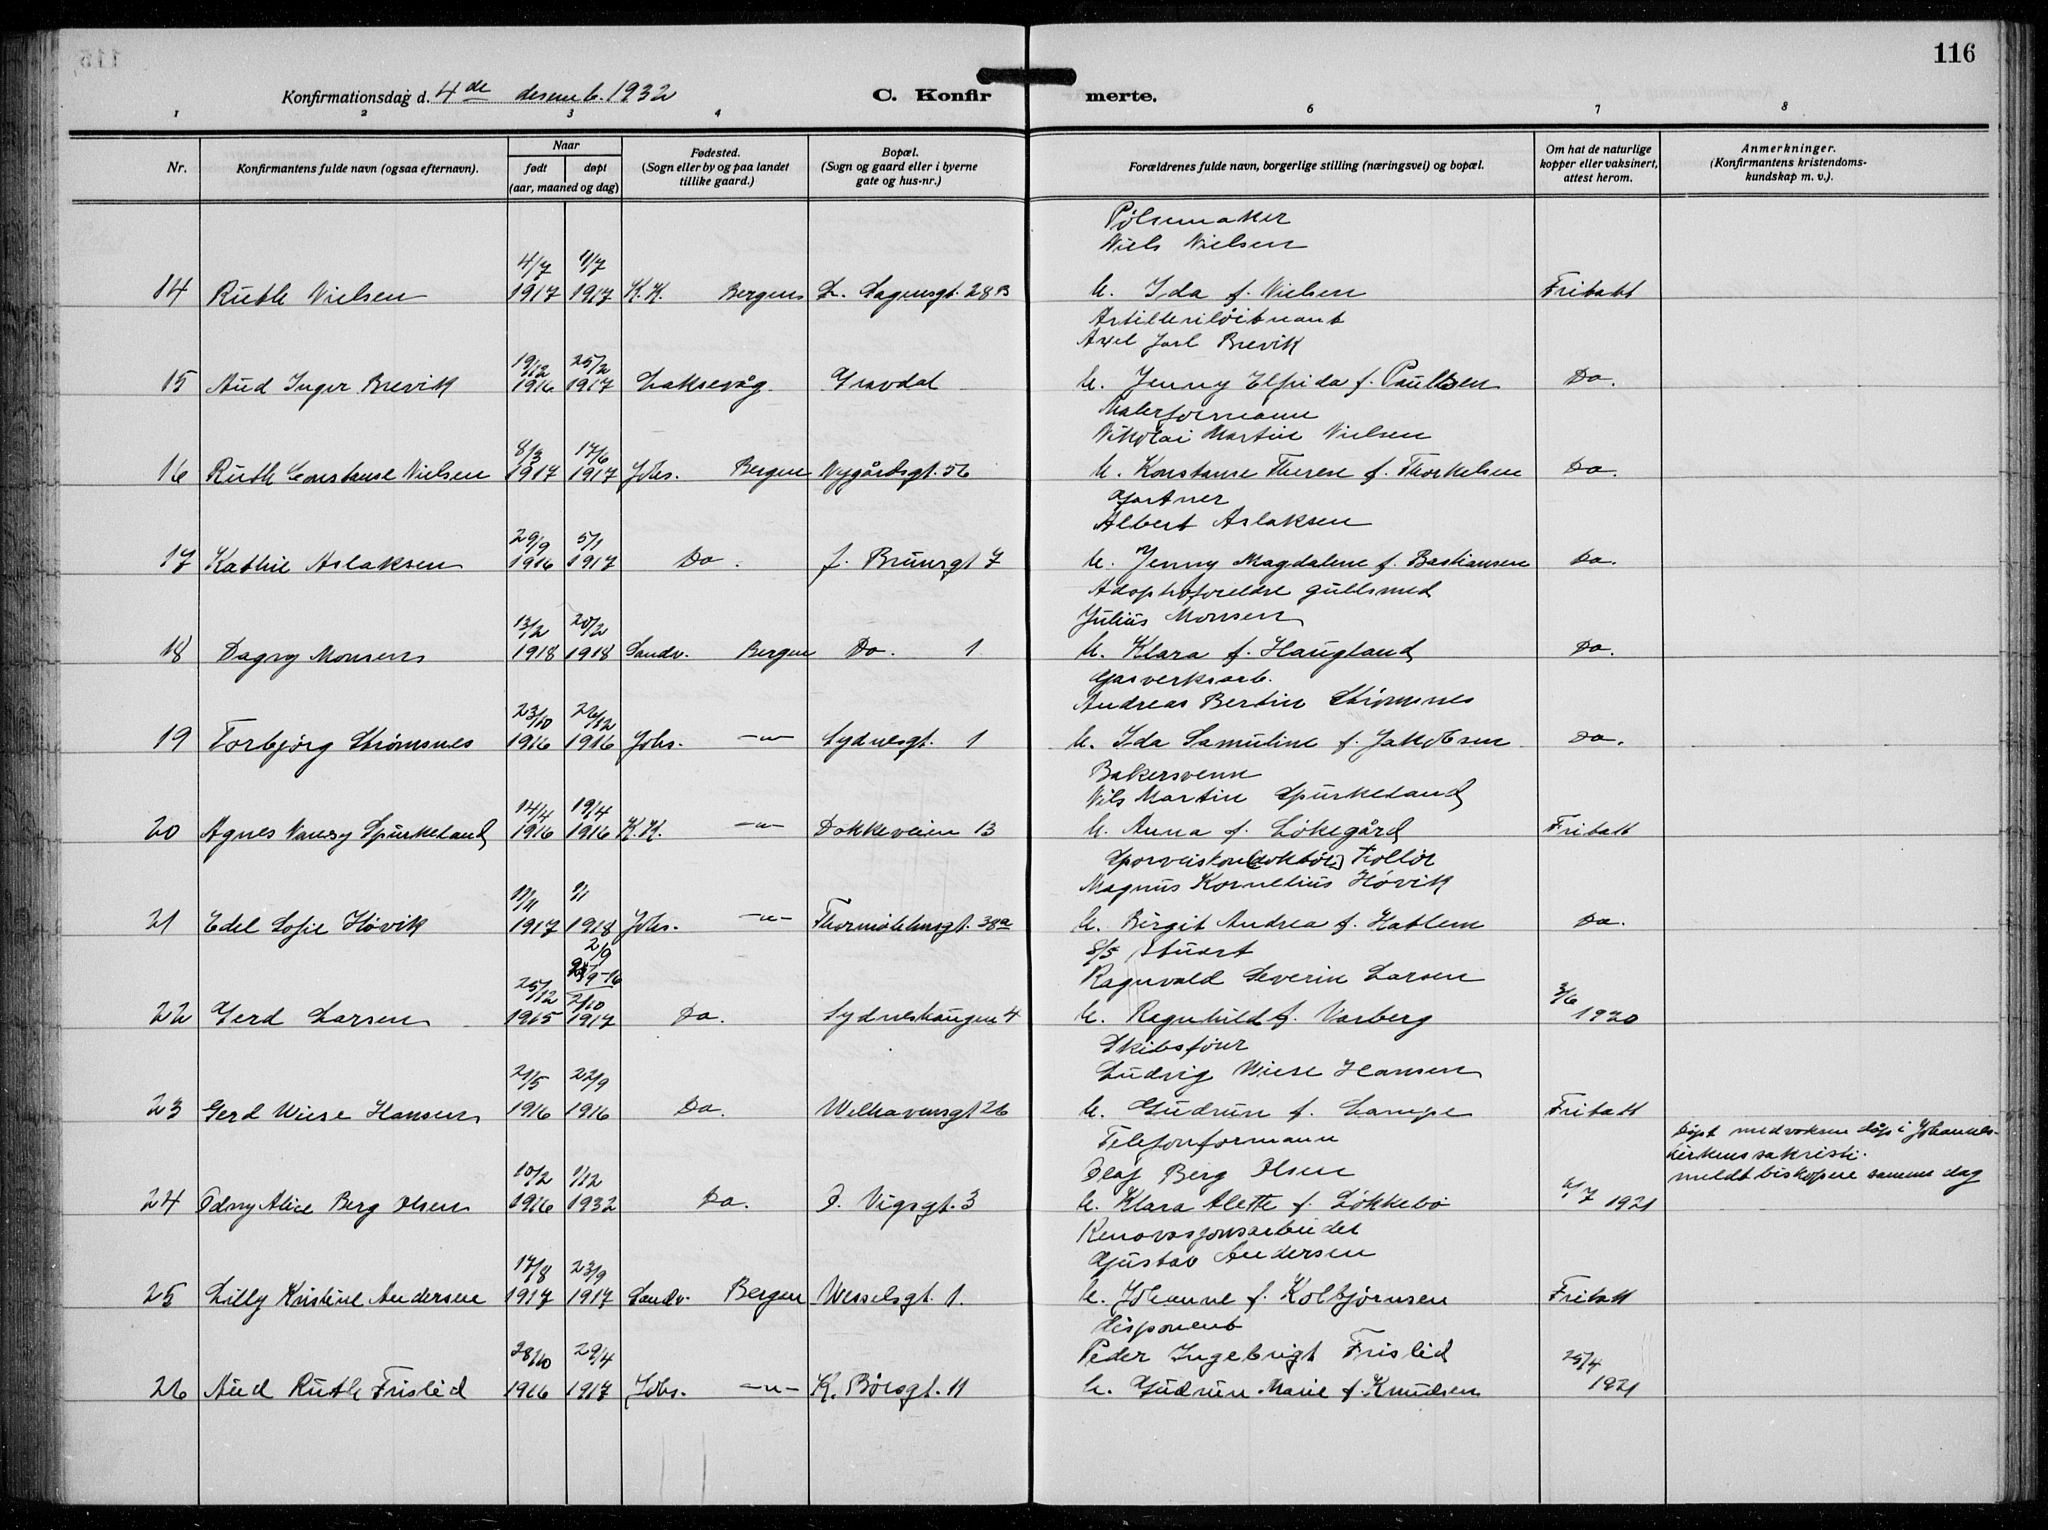 116
Konfirmationsdag d. 4de desemb. 1932
C. Konfir merte.
1 2 3 4 5 6 7 8
Nr. Konfirmantens fulde navn (ogsaa efternavn). Naar født døpt (aar, maaned og dag) Fødested. (Sogn eller by og paa landet tillike gaard.) Bopæl. (Sogn og gaard eller i byerne gate og hus-nr.) Forældrenes fulde navn, borgerlige stilling (næringsvei) og bopæl. Om hat de naturlige kopper eller vaksinert, attest herom. Anmerkninger. (Konfirmantens kristendoms-kundskap m. v.).
Pølsemaker
Niels Nielsen
14 Ruth Nielsen 4/7 1917 1917 K.K. Bergen L. Sagensgt. 28 B u. Ida f. Nielsen Fritatt
Artilleriløitnant
Axel Jarl Brevik
15 Aud Inger Brevik 19/12 1916 25/2 1917 Laksevåg Gravdal u. Jenny Elfrida f. Paulsen Do.
Malerformann
Nikolai Martin Nielsen
16 Ruth Constanse Nielsen 8/3 1917 17/6 1917 Johs. Bergen Nygårdsgt. 56 u. Konstanse Therese f. Thorkelsen Do.
Gartner
Albert Aslaksen
17 Kathie Aslaksen 29/9 1916 5/1 1917 Do. J. Brunsgt 7 u. Jenny Magdalene f. Bastiansen Do.
Adoptivforeldre gullsmed
Julius Monsen
18 Dagny Monsen 13/2 1918 20/2 1918 Sandv. Bergen Do. 1 u. Klara f. Haugland Do.
Gasverksarb.
Andreas Bertin Strømsnes
19 Torbjørg Strømsnes 23/10 1916 26/12 1916 Johs. -"- Sydnesgt. 1 u. Ida Samuline f. Jakobsen Do.
Bakersvenn
Nils Martin Spurkeland
20 Agnes Nancy Spurkeland 14/4 1916 19/4 1916 K.K. -"- Dokkeveien 13 u. Anna f. Løkegård Fritatt
Sporveiskon[doktør] trollør
Magnus Kornelius Høvik
21 Edel Sofie Høvik 11/11 1917 1/1 1918 Johs. -"- Thormøhlensgt. 38a u. Birgit Andrea f. Hatlem Do.
S/S Stuart
Ragnvald Severin Larsen
22 Gerd Larsen 25/12 1915 2/10 1917 Do. Sydneshaugen 4 u. Ragnhild f. Varberg 3/6 1920
Skibsfører
Ludvig Wiese Hansen
23 Gerd Wiese Hansen 21/5 1916 22/9 1916 Do. Welhavensgt 26 u. Gudrun f. Lampe Fritatt
Telefonformann
Olaf Berg Olsen
døpt med voksen dåp i Johannes-
kirkens sakristi.
meldt biskopen samme dag
24 Odny Alice Berg Olsen 10/2 1916 1/12 1932 Do. O. Vigsgt. 3 u. Klara Alette f. Løkkebø 1921
Renovasjonsarbeider
Gustav Andersen
25 Lilly Kristine Andersen 17/8 1917 23/9 1917 Sandv. Bergen Wesselsgt. 1. u. Johanne f. Kolbjørnsen Fritatt
disponent
Peder Ingebrigt Frislid
26 Aud Ruth Frislid 28/10 1916 29/4 1917 Johs. -"- K. Boesgt. 11 u. Gudrun Marie f. Knudsen 25/4 1921